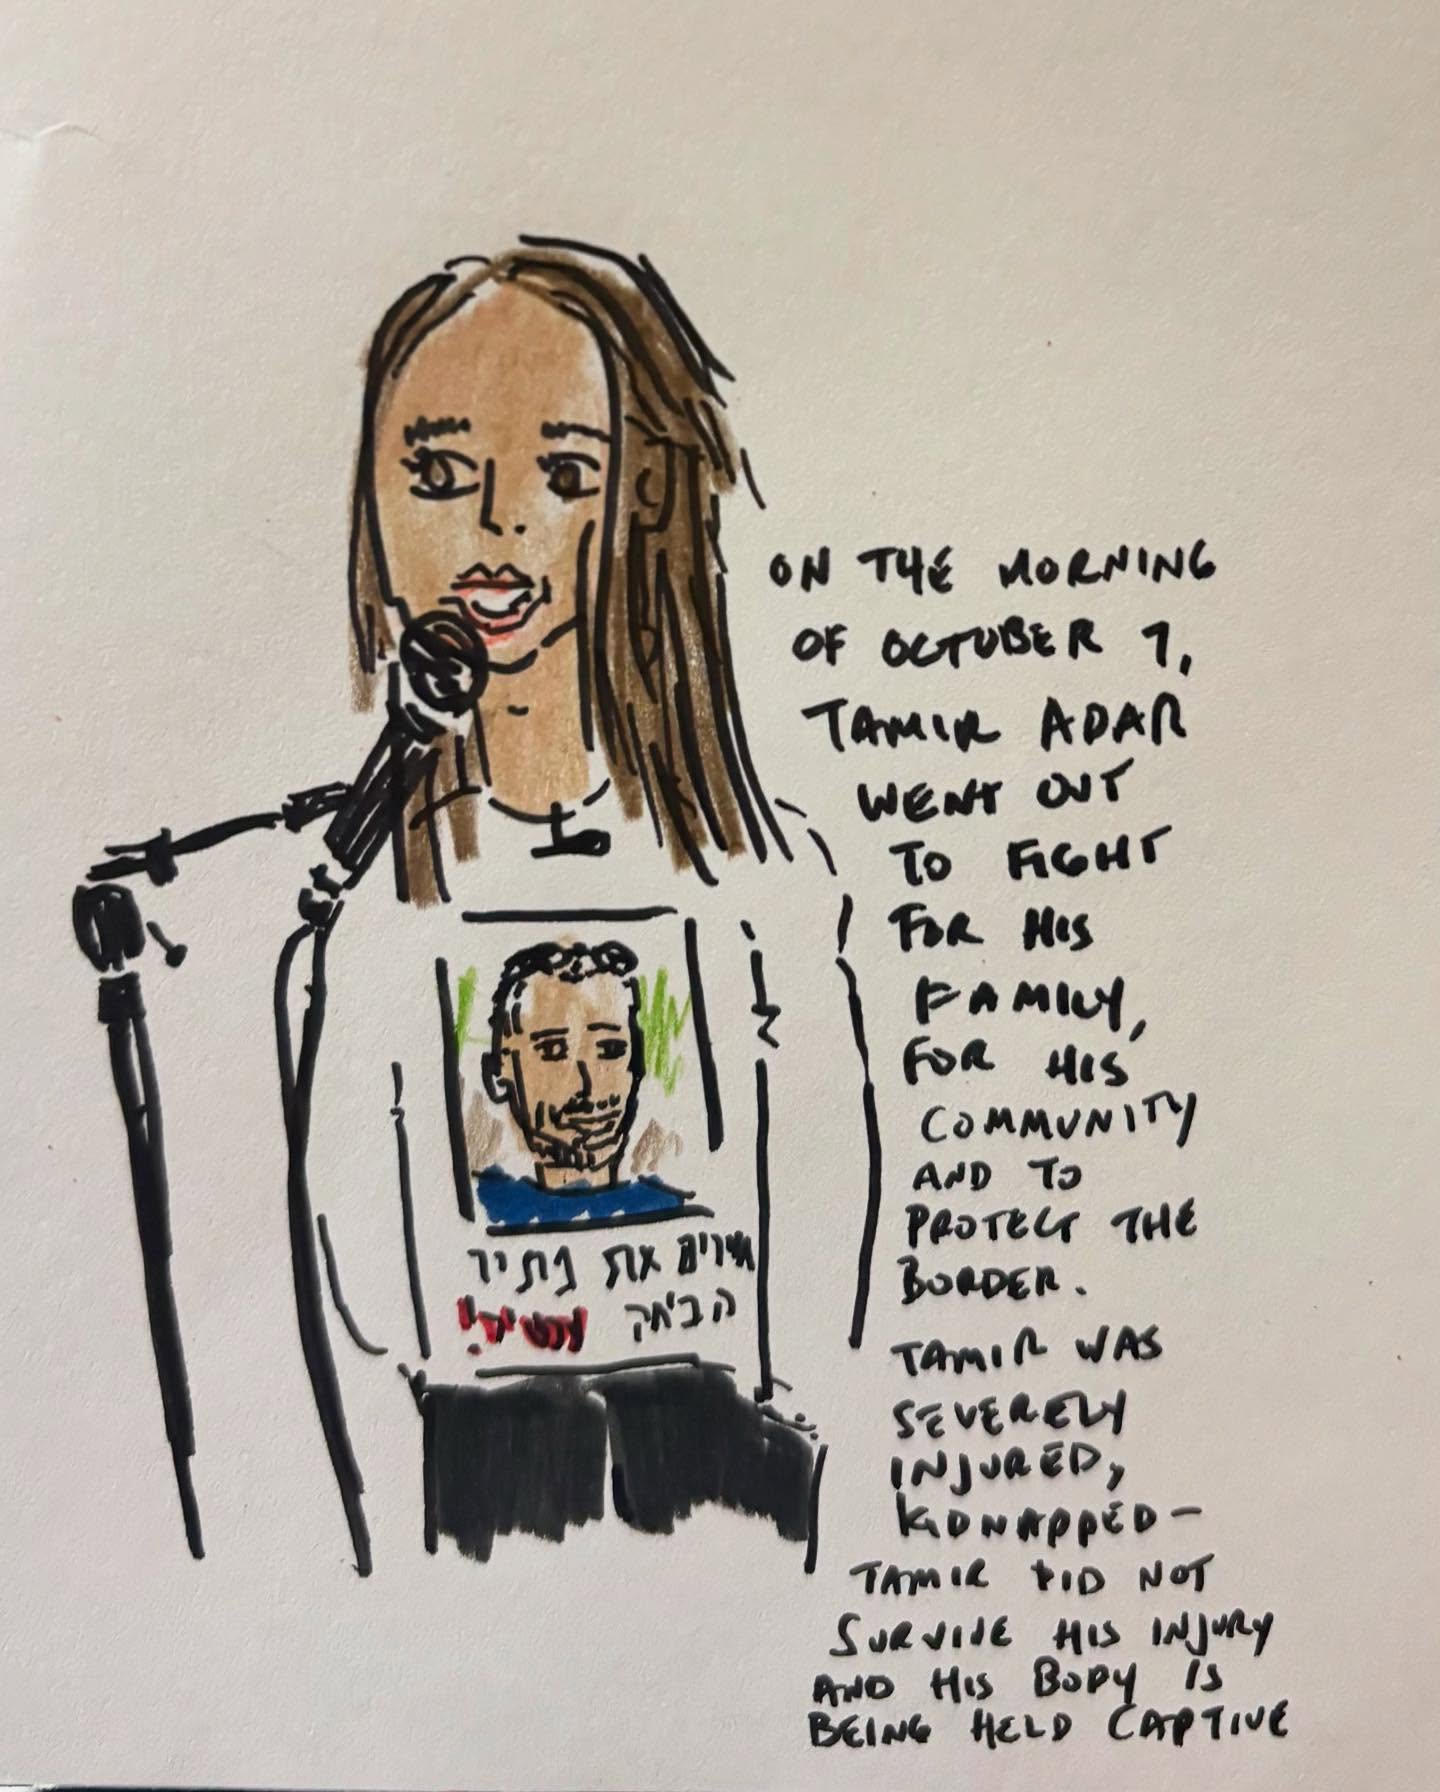 ON THE MORNING
OF OCTOBER 7,
TAMIR ADAR
WENT OUT
TO FIGHT
FOR HIS
FAMILY,
FOR HIS
COMMUNITY
AND TO
PROTECT THE
BORDER.
TAMIR WAS
SEVERELY
INJURED,
KIDNAPPED—
TAMIR DID NOT
SURVIVE HIS INJURY
AND HIS BODY IS
BEING HELD CAPTIVE
את תמיר
הביתה עכשיו!